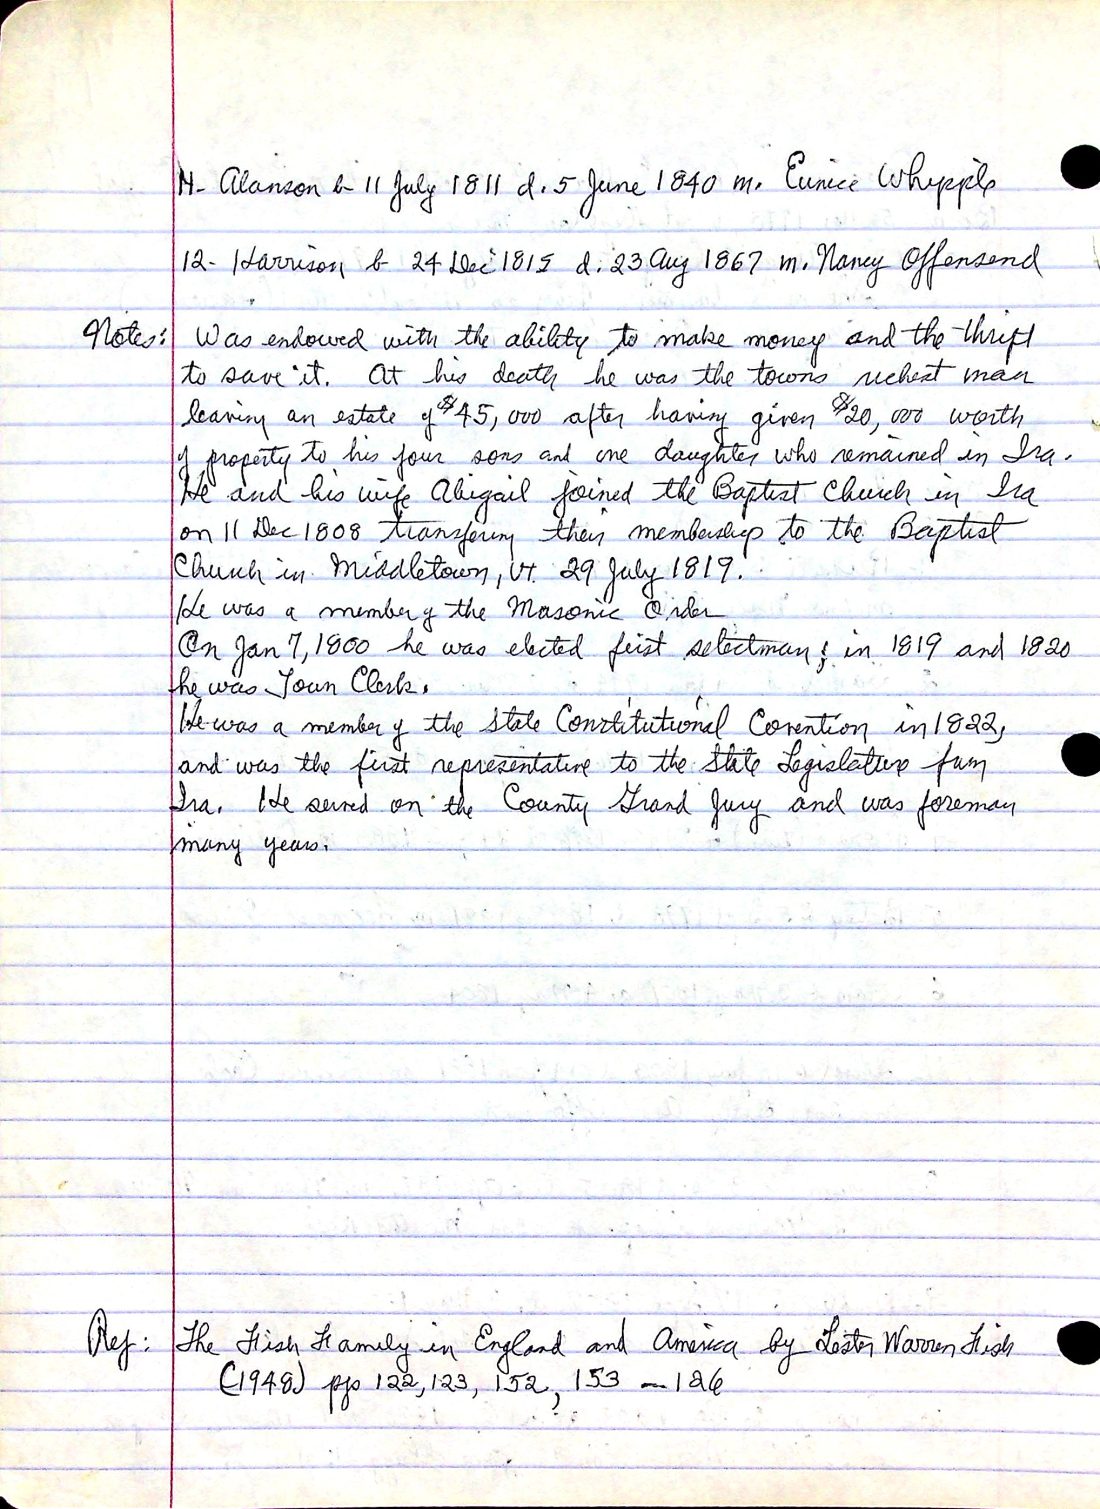 11- Alanson b- 11 July 1811 d. 5 June 1840 m. Eunice Whipple
12- Harrison b 24 Dec 1815 d. 23 Aug 1867 m. Nancy Offensend
Notes: Was endowed with the ability to make money and the thrift
to save it. At his death he was the towns richest man
leaving an estate of $45,000 after having given $20,000 worth
of property to his four sons and one daughter who remained in Ira.
He and his wife Abigail joined the Baptist Church in Ira
on 11 Dec 1808 transfering their membership to the Baptist
Church in Middletown, Vt. 29 July 1819.
He was a member of the Masonic Order
On Jan 7, 1800 he was elected first selectman; in 1819 and 1820
he was Town Clerk.
He was a member of the State Constitutional Covention in 1822,
and was the first representative to the State Legislature from
Ira. He served on the County Grand Jury and was foreman
many years.
Ref: The Fish Family in England and America by Lester Warren Fish
(1948) pgs 122, 123, 152, 153 - 186